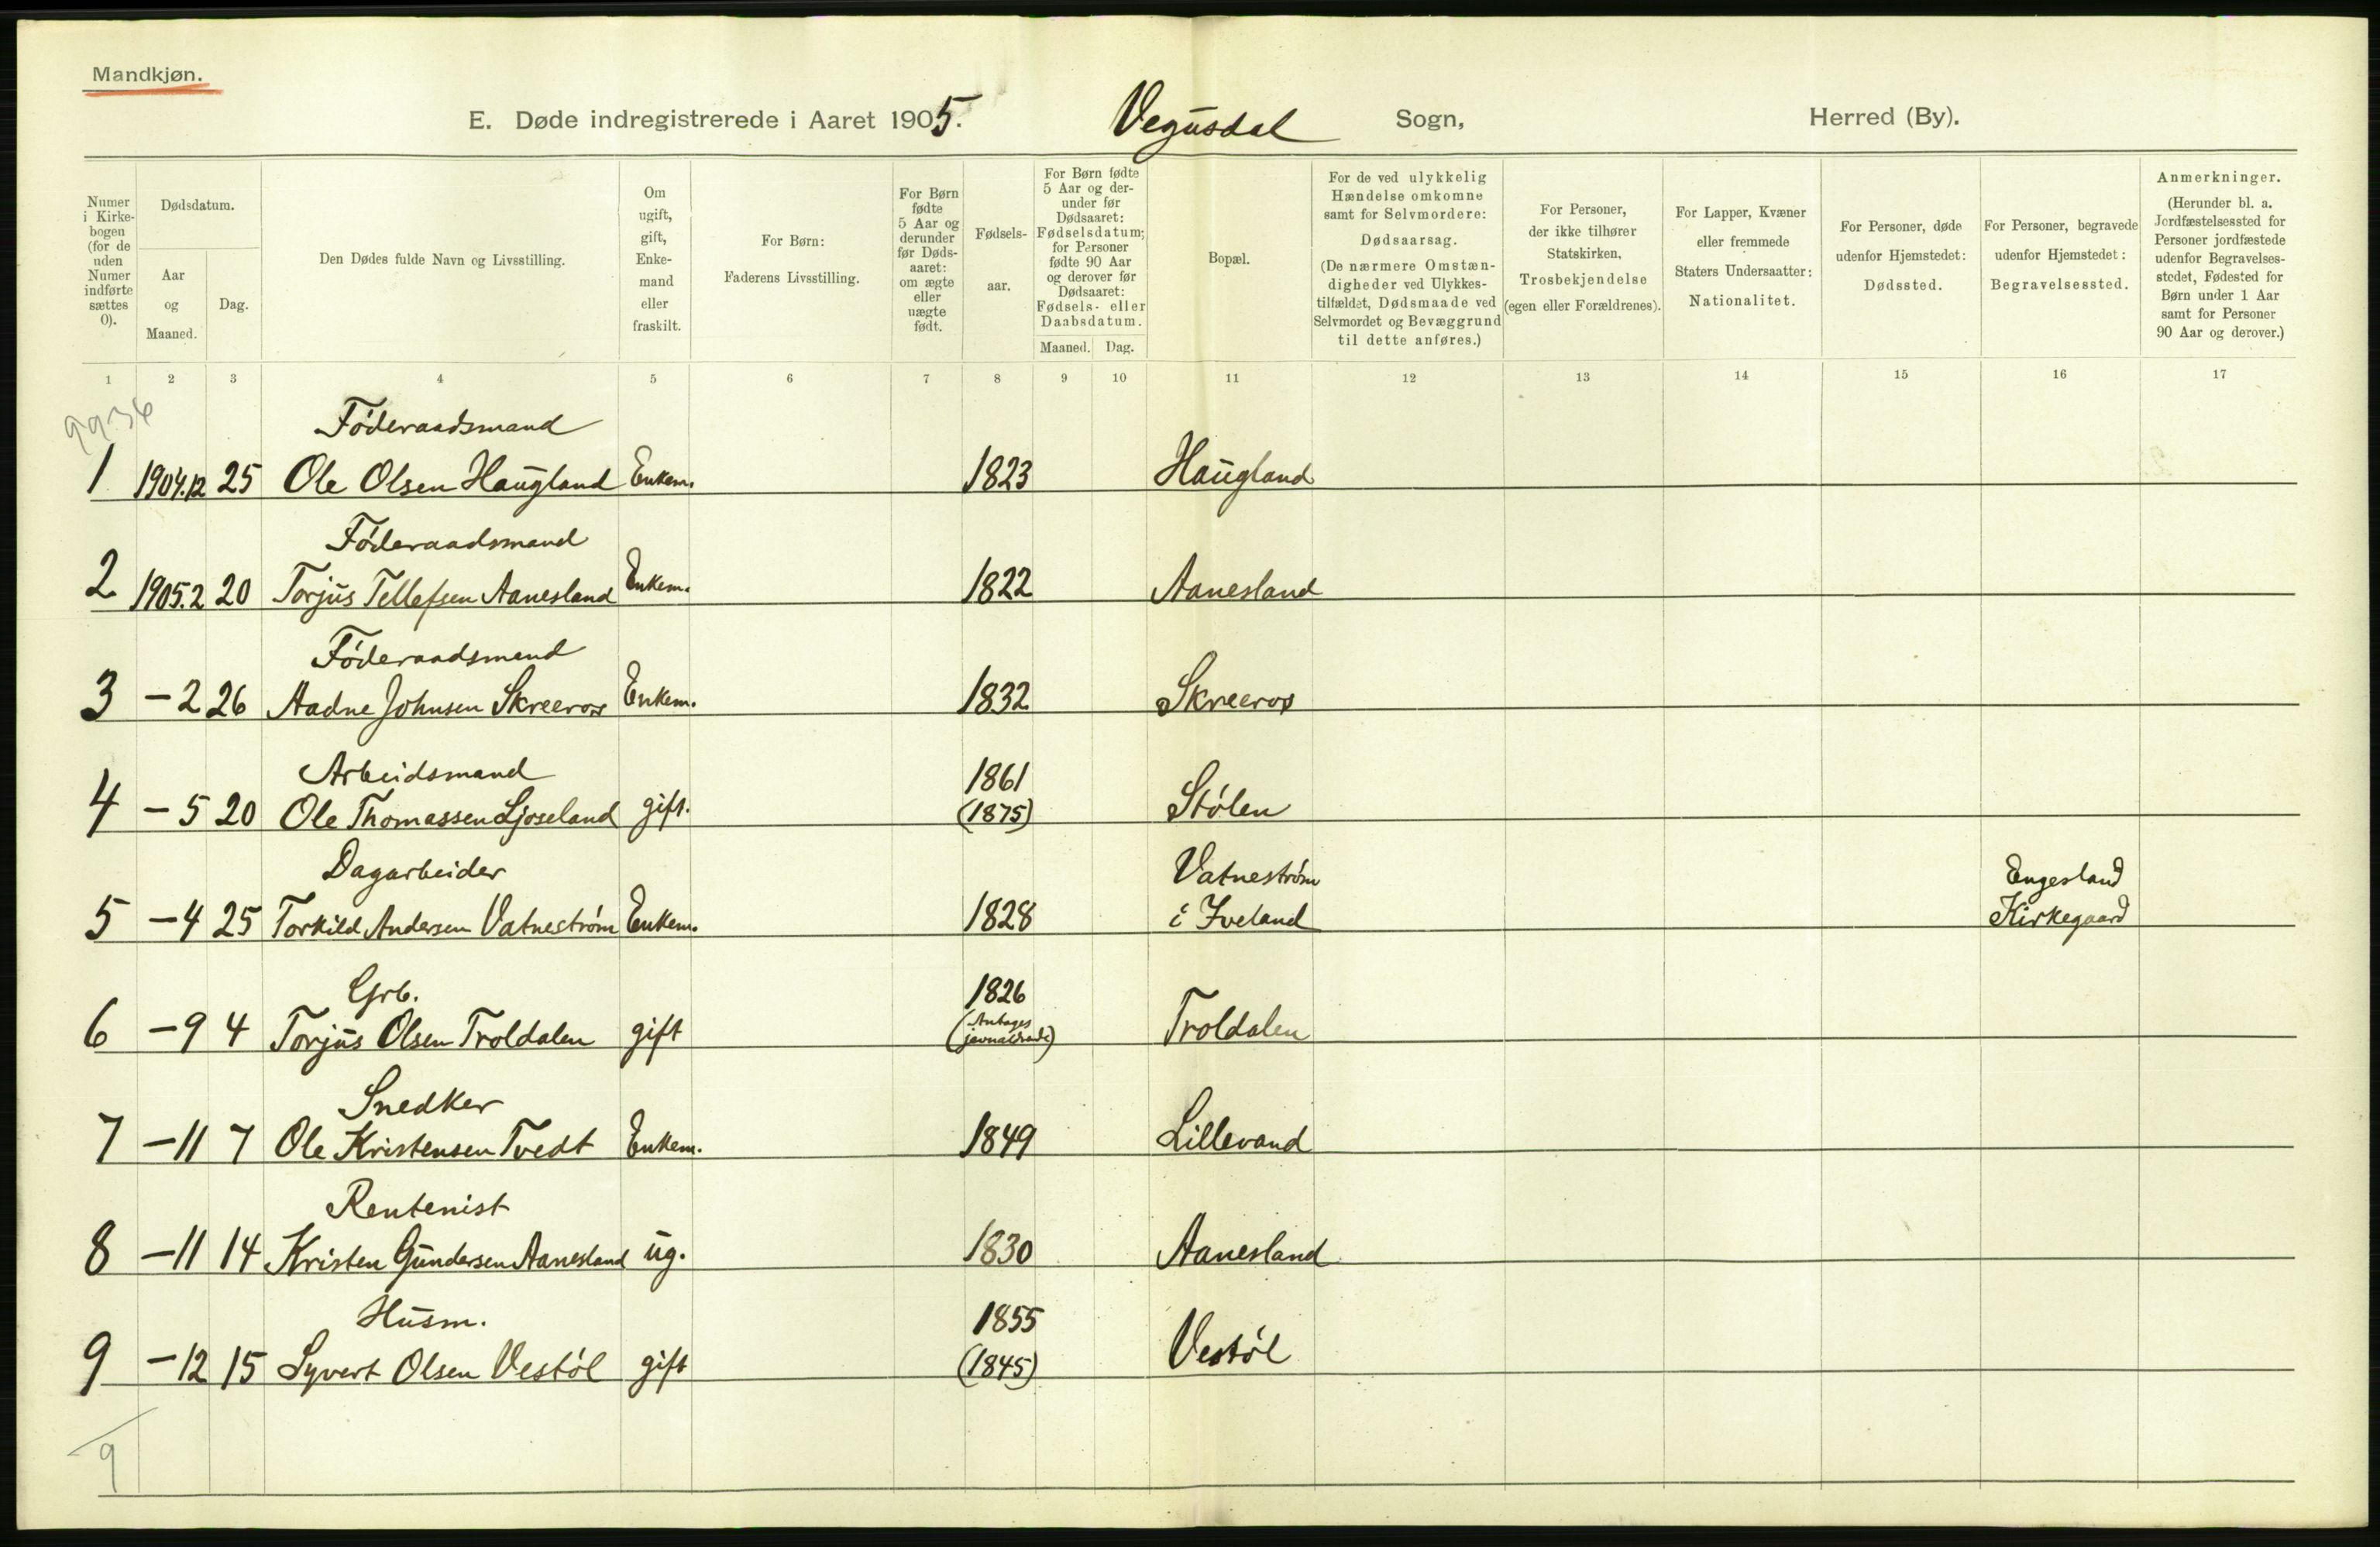 Mandkjøn.
E. Døde indregistrerede i Aaret 1905. Vegusdal Sogn, Herred (By).
Numer i Kirkebogen (for de uden Numer indførte sættes 0).
Dødsdatum.
Aar og Maaned.
Dag.
Den Dødes fulde Navn og Livsstilling.
Om ugift, gift, Enkemand eller fraskilt.
For Børn: Faderens Livsstilling.
For Børn fødte 5 Aar og derunder før Dødsaaret: om ægte eller uægte født.
Fødselsaar.
For Børn fødte 5 Aar og derunder før Dødsaaret: Fødselsdatum; for Personer fødte 90 Aar og derover før Dødsaaret: Fødsels- eller Daabsdatum.
Maaned. Dag.
Bopæl.
For de ved ulykkelig Hændelse omkomne samt for Selvmordere: Dødsaarsag. (De nærmere Omstændigheder ved Ulykkestilfældet, Dødsmaade ved Selvmordet og Bevæggrund til dette anføres.)
For Personer, der ikke tilhører Statskirken, Trosbekjendelse (egen eller Forældrenes).
For Lapper, Kvæner eller fremmede Staters Undersaatter: Nationalitet.
For Personer, døde udenfor Hjemstedet: Dødssted.
For Personer, begravede udenfor Hjemstedet: Begravelsessted.
Anmerkninger. (Herunder bl. a. Jordfæstelsessted for Personer jordfæstede udenfor Begravelsesstedet, Fødested for Børn under 1 Aar samt for Personer 90 Aar og derover.)
1 2 3 4 5 6 7 8 9 10 11 12 13 14 15 16 17
9936
Føderaadsmand
1 1904.12 25 Ole Olsen Haugland Enkem. 1823 Haugland
Føderaadsmand
2 1905.2 20 Torjus Tellefsen Aanesland Enkem. 1822 Aanesland
Føderaadsmand
3 – 2 26 Aadne Johnsen Skreeros Enkem. 1832 Skreeros
Arbeidsmand 1861
4 – 5 20 Ole Thomassen Ljoseland gift. (1875) Stølen
Dagarbeider Vatnestrøm Engesland
5 – 4 25 Torkild Andersen Vatnestrøm Enkem. 1828 i Iveland Kirkegaard
Grb. 1826
6 – 9 4 Torjus Olsen Troldalen gift (Antages jevnaldrende) Troldalen
Snedker
7 – 11 7 Ole Kristensen Tvedt Enkem. 1849 Lillevand
Rentenist
8 – 11 14 Kristen Gundersen Aanesland ug. 1830 Aanesland
Husm. 1855
9 – 12 15 Syvert Olsen Vestøl gift (1845) Vestøl
9